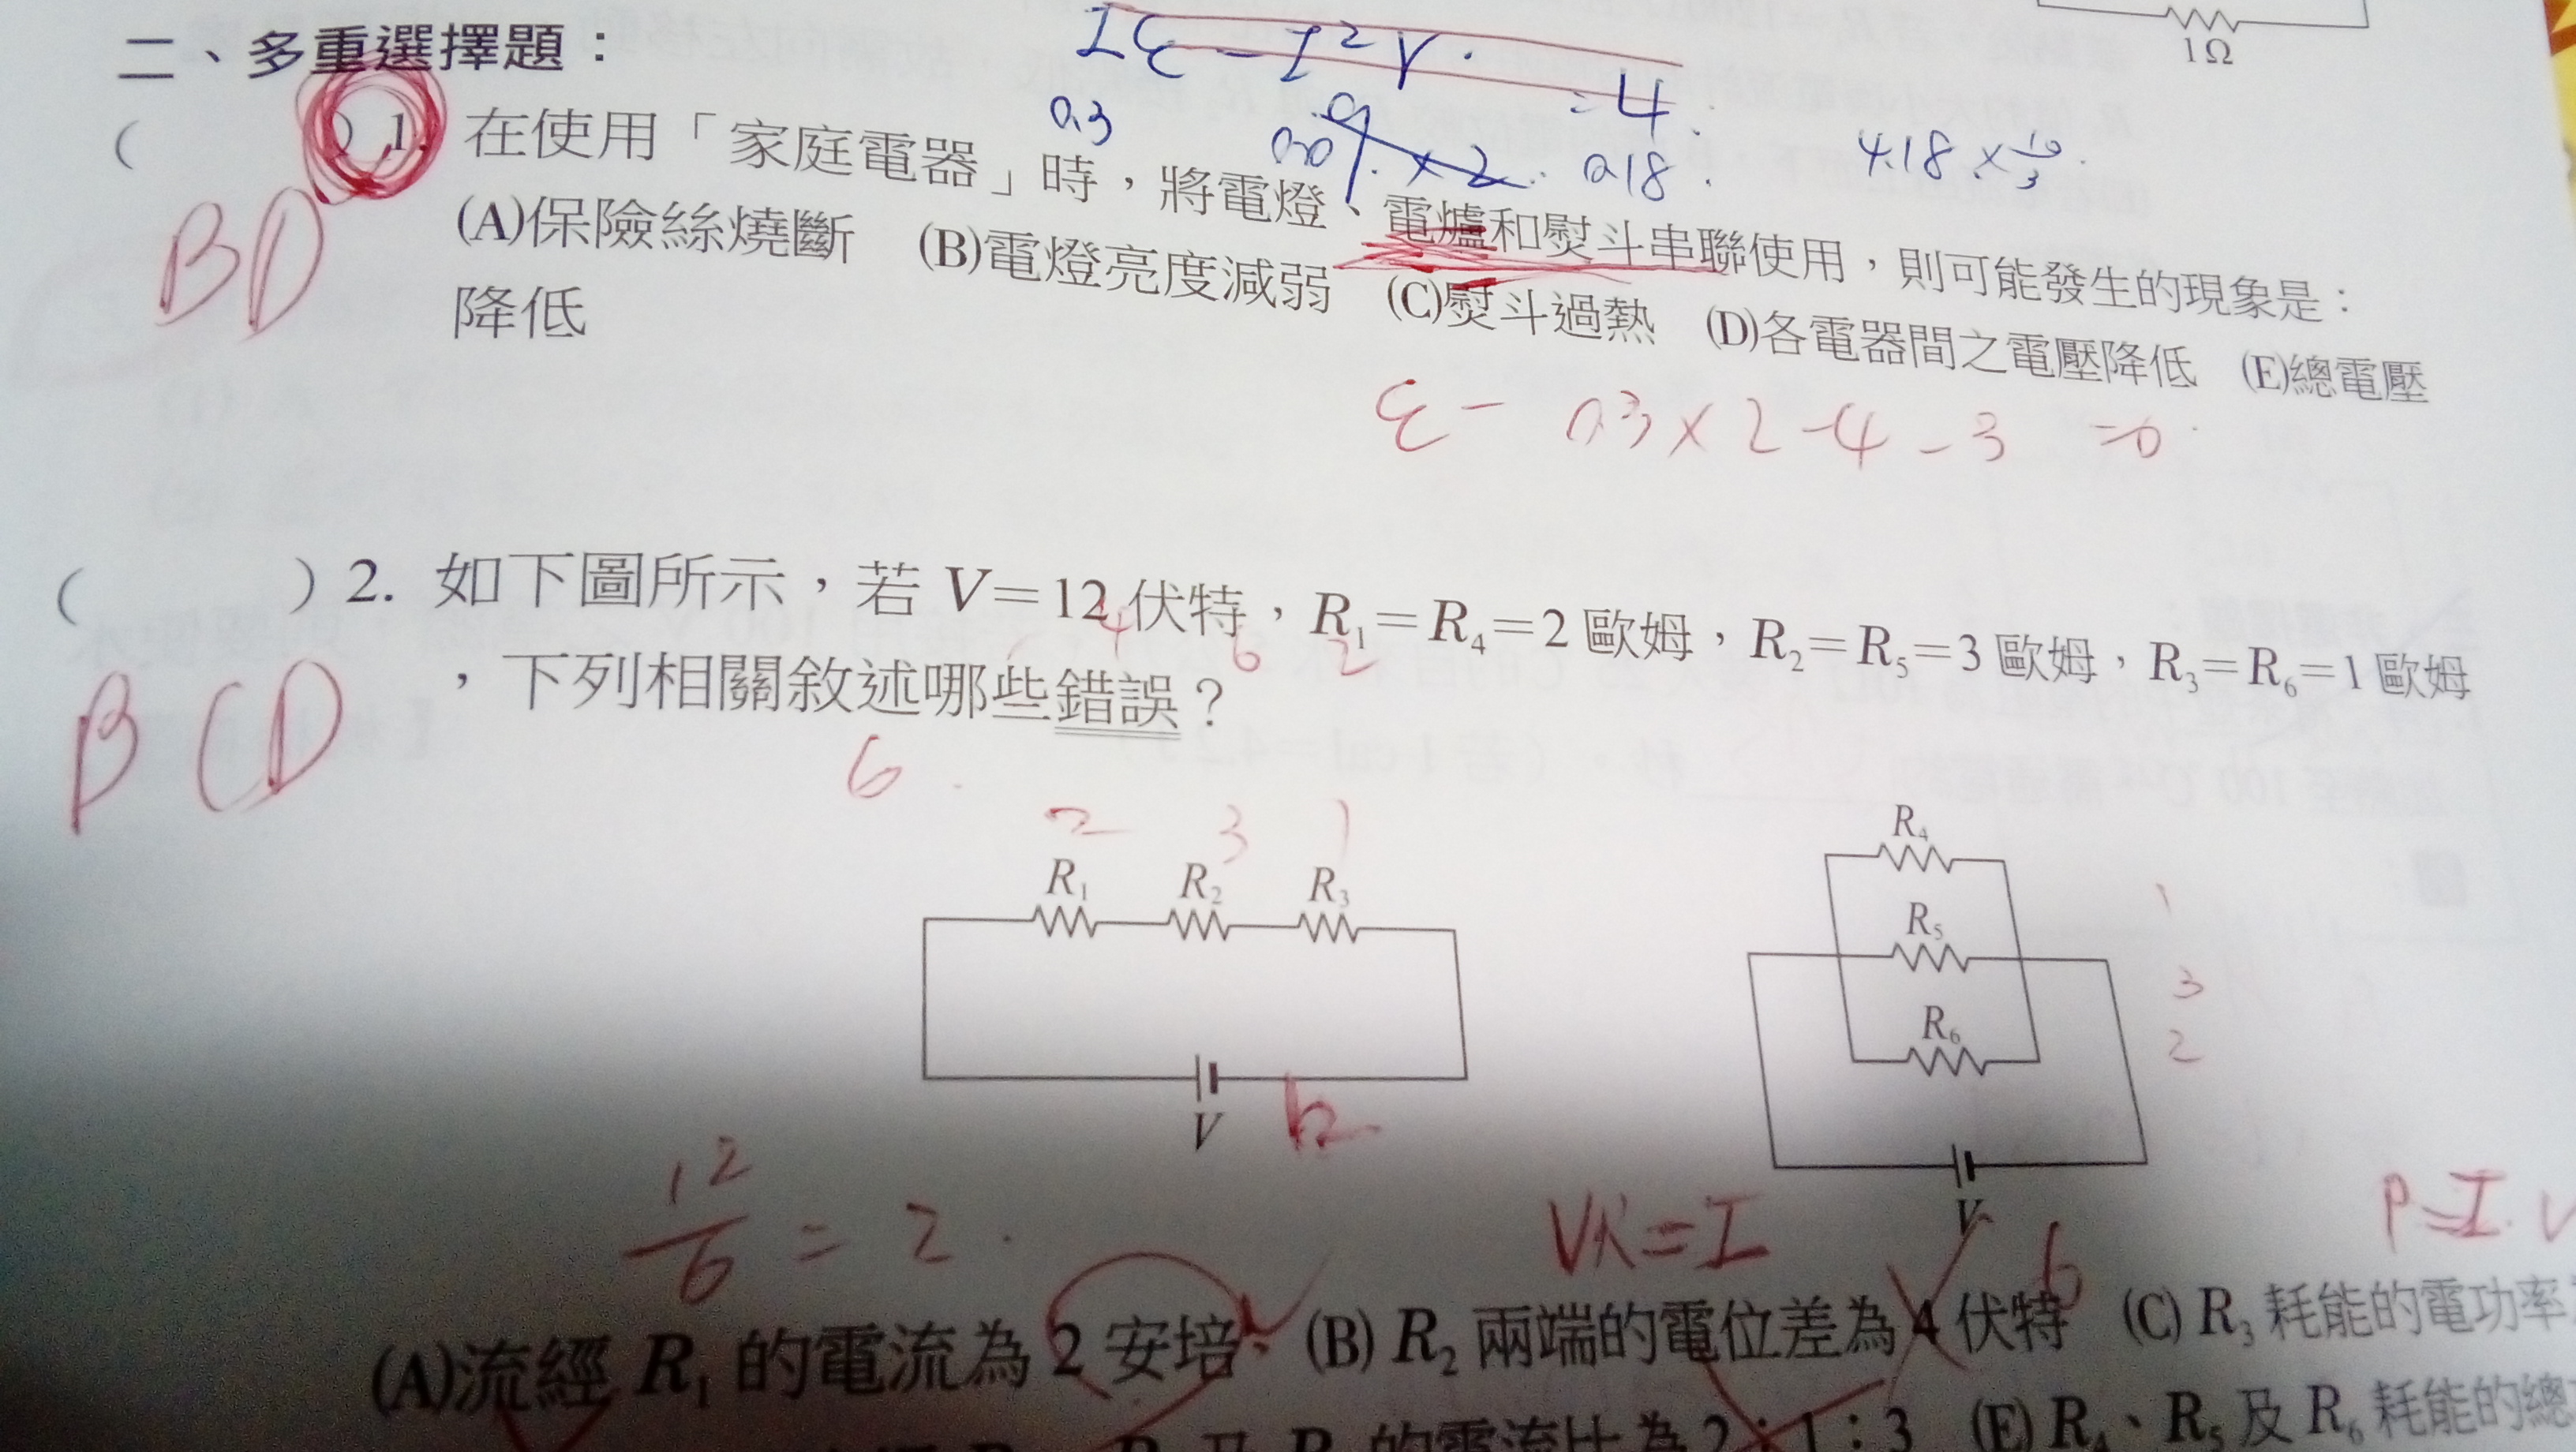 1Ω
二、多重選擇題：
Iε - I²r = 4
0.3 0.09 × 2 0.18 4.18 × 10/3
( ) 1. 在使用「家庭電器」時，將電燈、電爐和熨斗串聯使用，則可能發生的現象是：
BD
(A)保險絲燒斷 (B)電燈亮度減弱 (C)熨斗過熱 (D)各電器間之電壓降低 (E)總電壓
降低
ε - 0.3 × 2 - 4 - 3 = 0
( ) 2. 如下圖所示，若 V=12 伏特，R₁=R₄=2 歐姆，R₂=R₅=3 歐姆，R₃=R₆=1 歐姆
4 6 2
，下列相關敘述哪些錯誤？
BCD
6
2 3 1
R₁ R₂ R₃
V 12
R₄
R₅
R₆
1
3
2
V
12/6 = 2
=I
P=I.V
6
(A)流經 R₁ 的電流為 2 安培 (B) R₂ 兩端的電位差為 4 伏特 (C) R₃ 耗能的電功率
的電流比為 2：1：3 (E) R₄、R₅ 及 R₆ 耗能的總